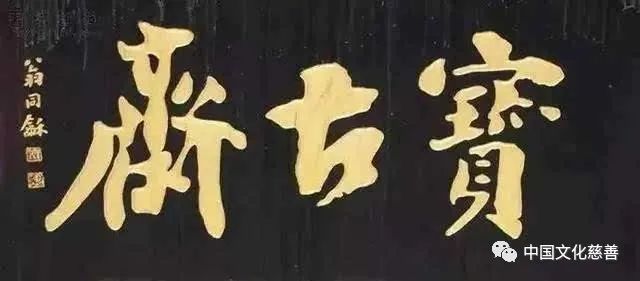 寶古齋
翁同龢
中国文化慈善